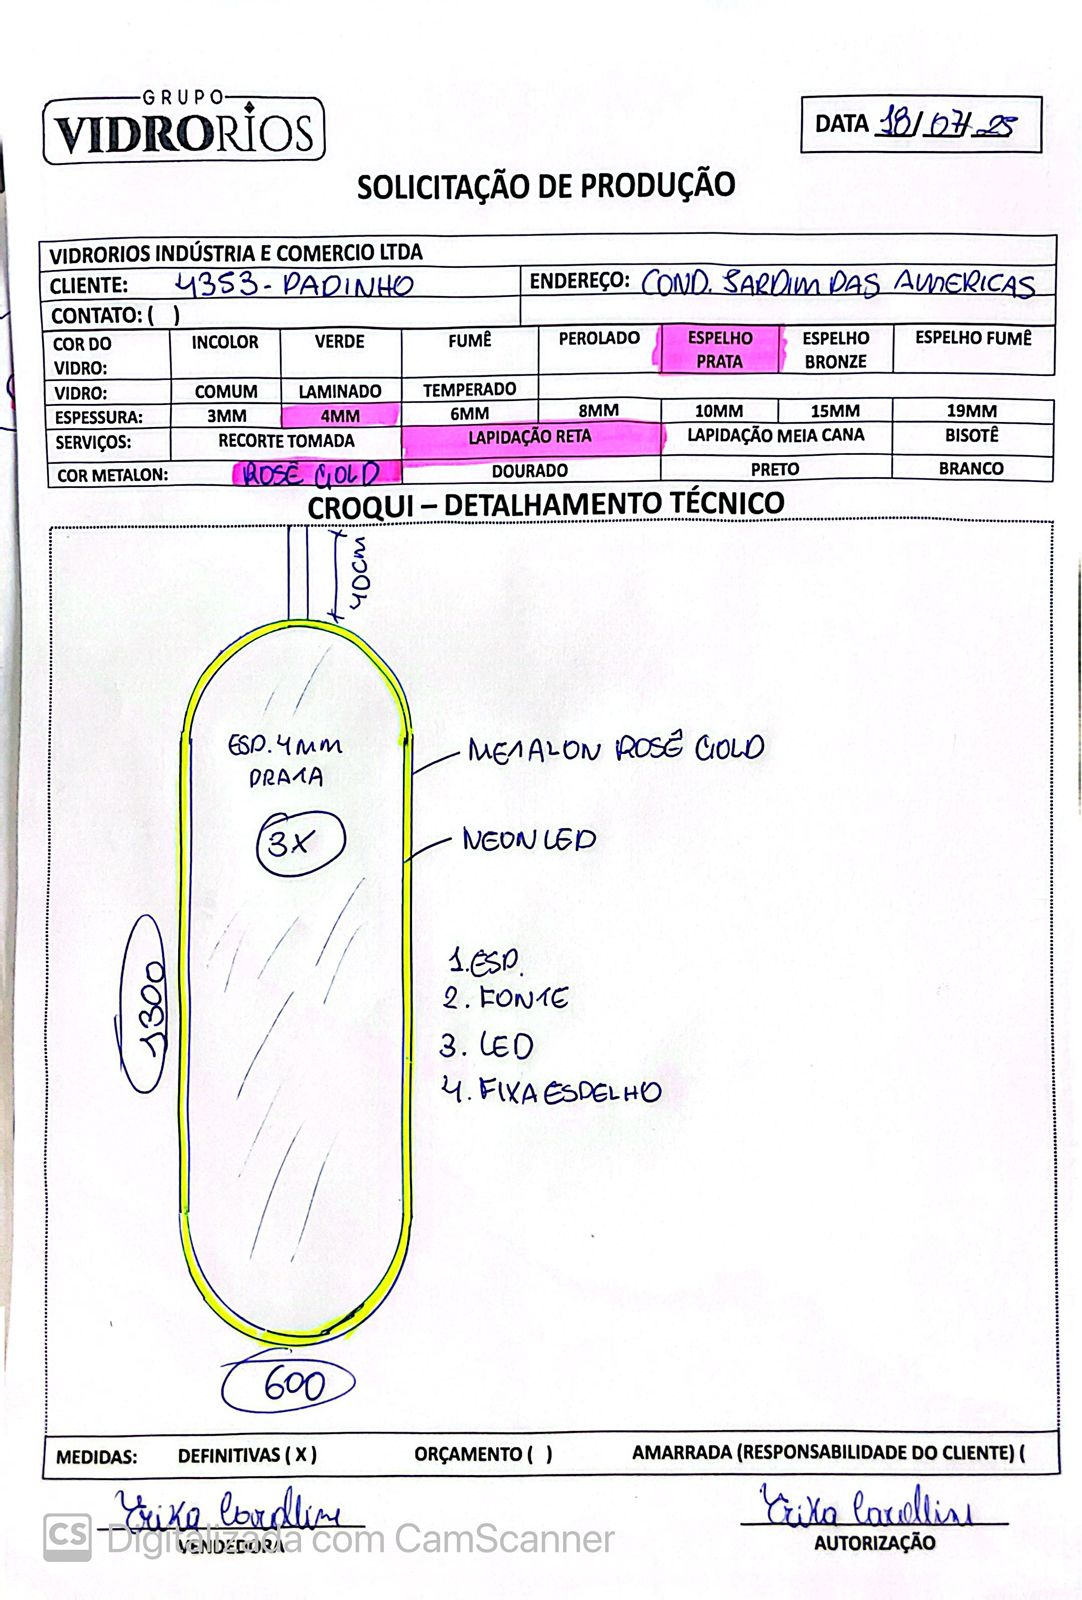 GRUPO
VIDRORIOS
DATA 18/07/25
SOLICITAÇÃO DE PRODUÇÃO
VIDRORIOS INDÚSTRIA E COMERCIO LTDA
CLIENTE: 4353 - PADINHO ENDEREÇO: COND. JARDIM DAS AMERICAS
CONTATO: ( )
COR DO VIDRO: INCOLOR VERDE FUMÊ PEROLADO ESPELHO PRATA ESPELHO BRONZE ESPELHO FUMÊ
VIDRO: COMUM LAMINADO TEMPERADO
ESPESSURA: 3MM 4MM 6MM 8MM 10MM 15MM 19MM
SERVIÇOS: RECORTE TOMADA LAPIDAÇÃO RETA LAPIDAÇÃO MEIA CANA BISOTÊ
COR METALON: ROSÊ GOLD DOURADO PRETO BRANCO
CROQUI – DETALHAMENTO TÉCNICO
40cm
ESP. 4MM
PRATA
METALON ROSÊ GOLD
3X
NEON LED
1300
1. ESP.
2. FONTE
3. LED
4. FIXA ESPELHO
600
MEDIDAS: DEFINITIVAS ( X ) ORÇAMENTO ( ) AMARRADA (RESPONSABILIDADE DO CLIENTE) (
Erika Carolline Erika Carolline
VENDEDORA AUTORIZAÇÃO
CS Digitalizada com CamScanner